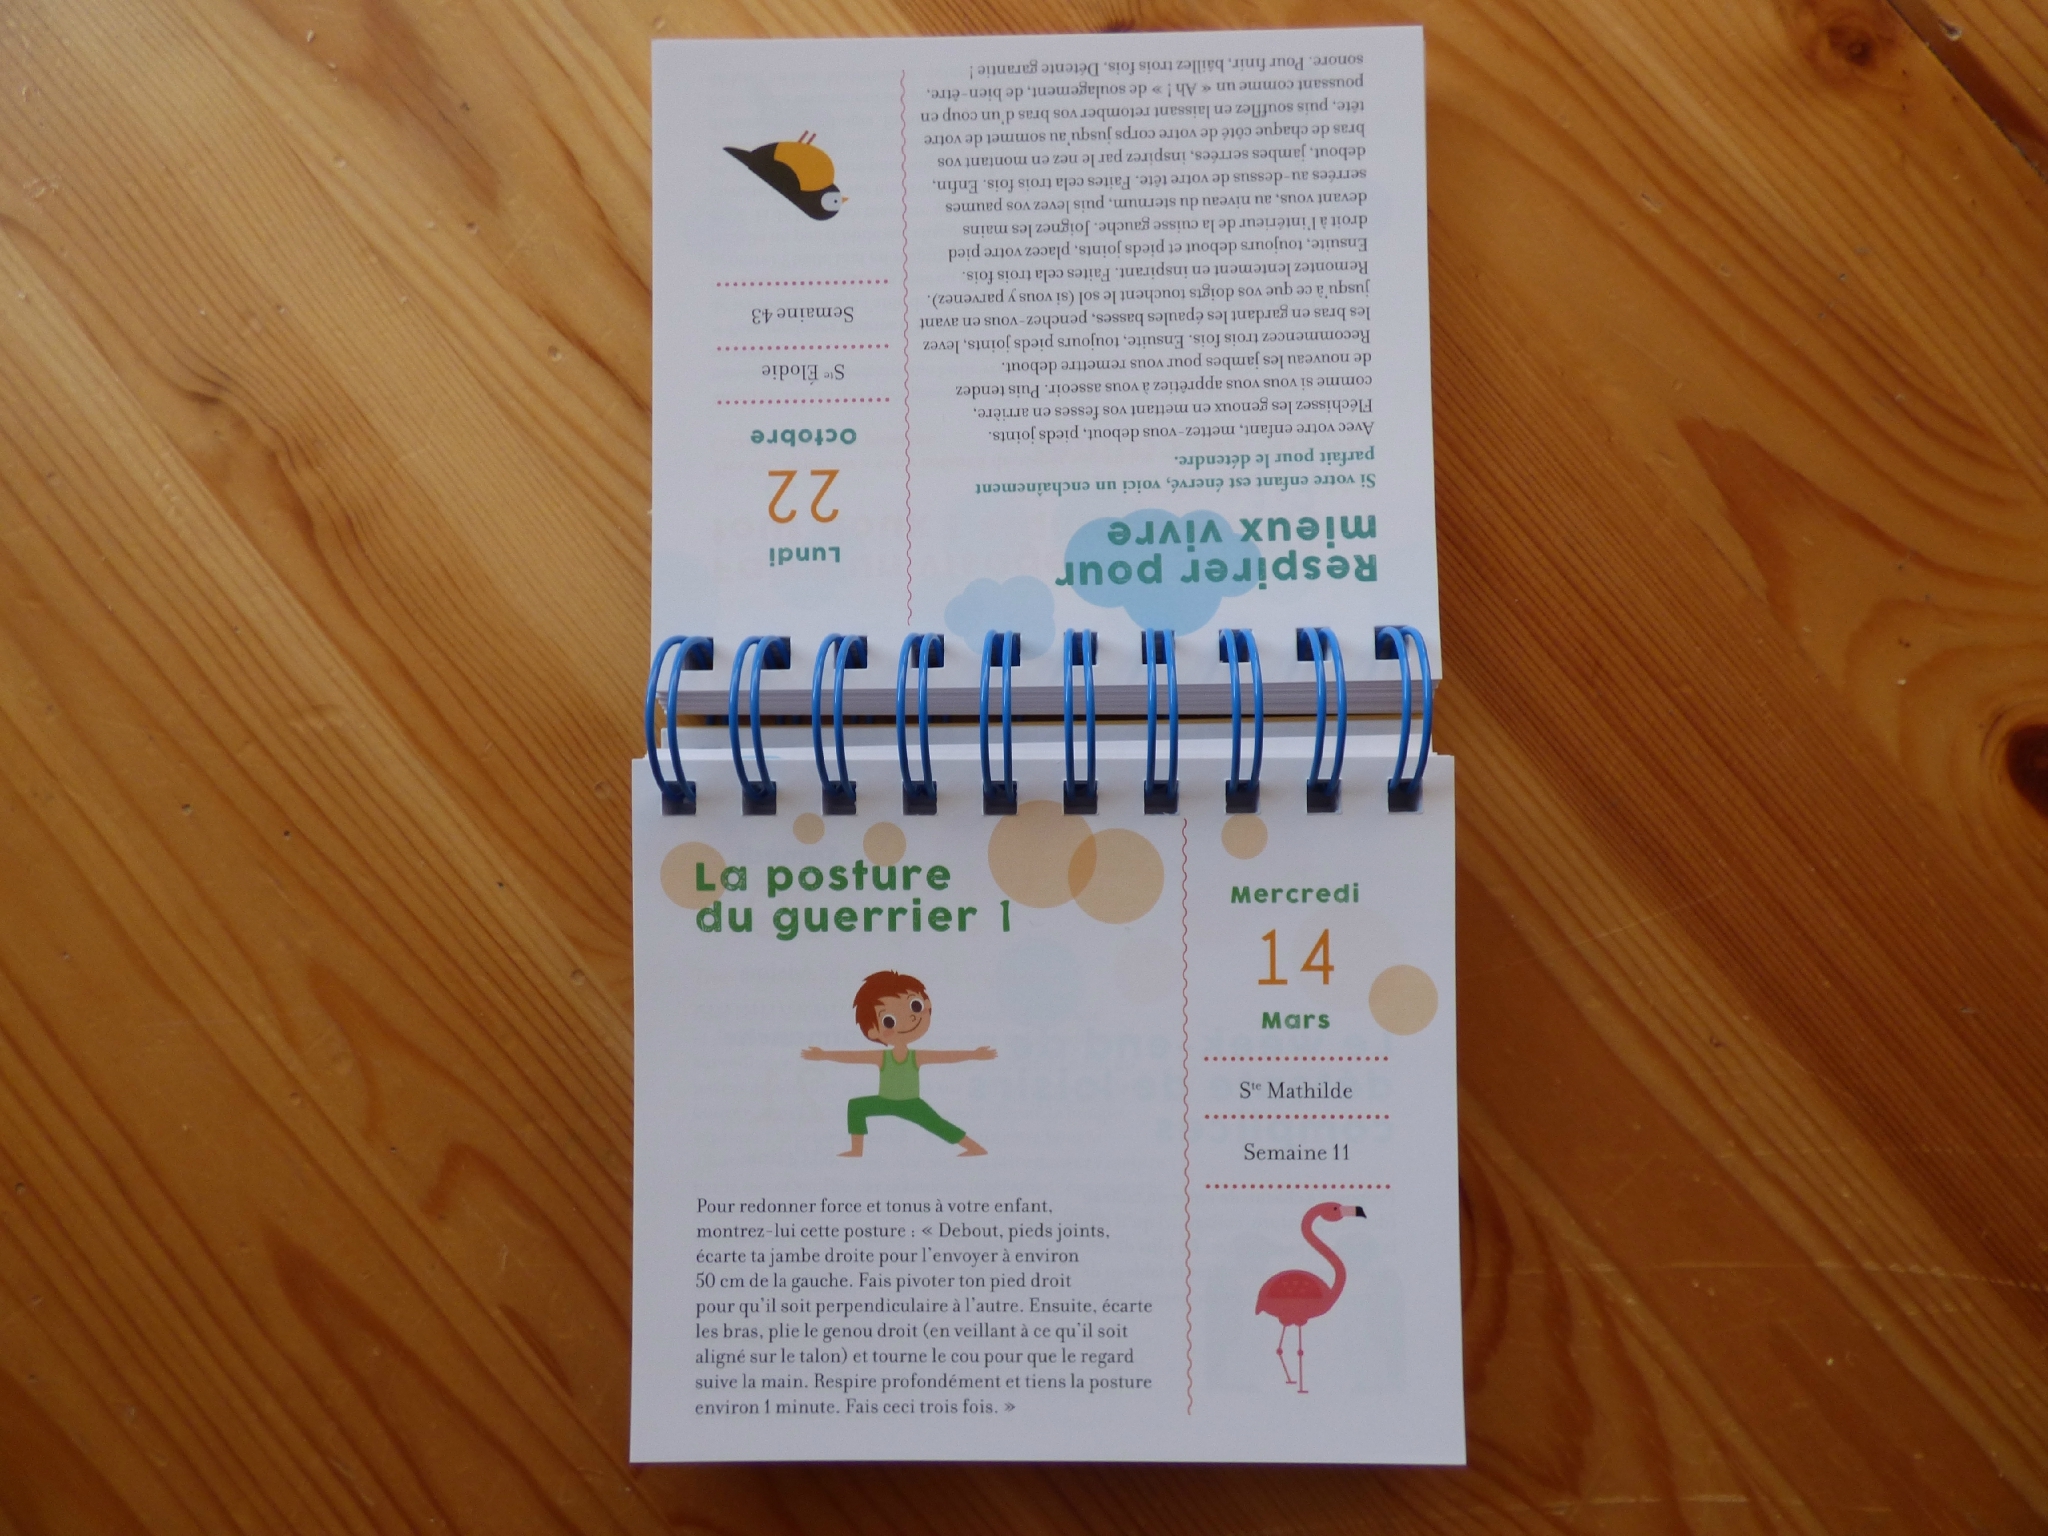 Respirer pour
mieux vivre
Si votre enfant est énervé, voici un enchaînement
parfait pour le détendre.
Avec votre enfant, mettez-vous debout, pieds joints.
Fléchissez les genoux en mettant vos fesses en arrière,
comme si vous vous apprêtiez à vous asseoir. Puis tendez
de nouveau les jambes pour vous remettre debout.
Recommencez trois fois. Ensuite, toujours pieds joints, levez
les bras en gardant les épaules basses, penchez-vous en avant
jusqu'à ce que vos doigts touchent le sol (si vous y parvenez).
Remontez lentement en inspirant. Faites cela trois fois.
Ensuite, toujours debout et pieds joints, placez votre pied
droit à l'intérieur de la cuisse gauche. Joignez les mains
devant vous, au niveau du sternum, puis levez vos paumes
serrées au-dessus de votre tête. Faites cela trois fois. Enfin,
debout, jambes serrées, inspirez par le nez en montant vos
bras de chaque côté de votre corps jusqu'au sommet de votre
tête, puis soufflez en laissant retomber vos bras d'un coup en
poussant comme un « Ah ! » de soulagement, de bien-être,
sonore. Pour finir, bâillez trois fois. Détente garantie !
Lundi
22
Octobre
Ste Élodie
Semaine 43
La posture
du guerrier 1
Pour redonner force et tonus à votre enfant,
montrez-lui cette posture : « Debout, pieds joints,
écarte ta jambe droite pour l'envoyer à environ
50 cm de la gauche. Fais pivoter ton pied droit
pour qu'il soit perpendiculaire à l'autre. Ensuite, écarte
les bras, plie le genou droit (en veillant à ce qu'il soit
aligné sur le talon) et tourne le cou pour que le regard
suive la main. Respire profondément et tiens la posture
environ 1 minute. Fais ceci trois fois. »
Mercredi
14
Mars
Ste Mathilde
Semaine 11